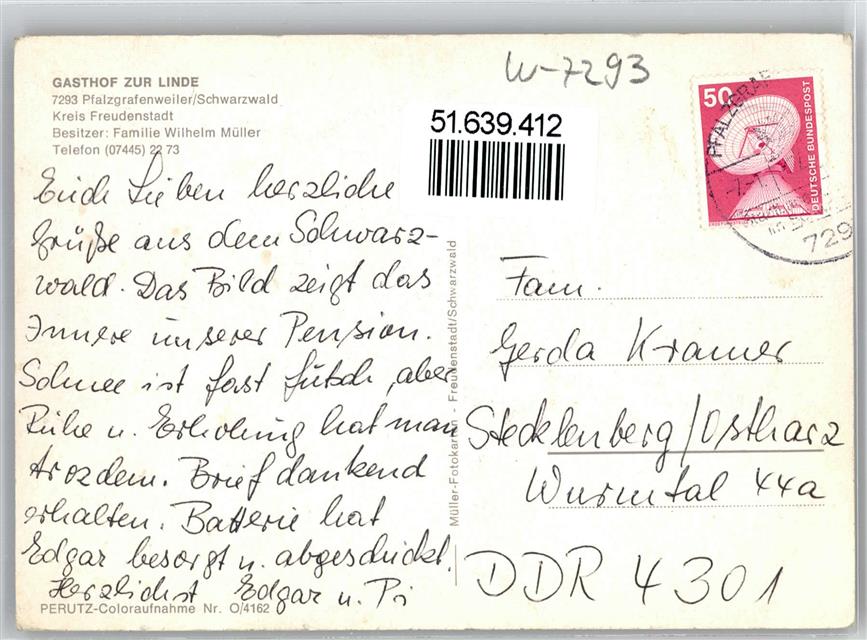 W-7293
GASTHOF ZUR LINDE
7293 Pfalzgrafenweiler/Schwarzwald
Kreis Freudenstadt
Besitzer: Familie Wilhelm Müller
Telefon (07445) 22 73
51.639.412
50
DEUTSCHE BUNDESPOST
PFALZGRAF
729
Euch Lieben herzliche
Grüße aus dem Schwarz-
wald. Das Bild zeigt das
Innere unserer Pension.
Schnee ist fast futsch, aber
Ruhe u. Erholung hat man
trozdem. Brief dankend
erhalten. Batterie hat
Edgar besorgt u. abgeschickt.
Herzlichst Edgar u.
PERUTZ-Coloraufnahme Nr. O/4162
Müller-Fotokarten - Freudenstadt/Schwarzwald
Fam.
Gerda Kramer
Stecklenberg/Ostharz
Wurmtal 44a
DDR 4301